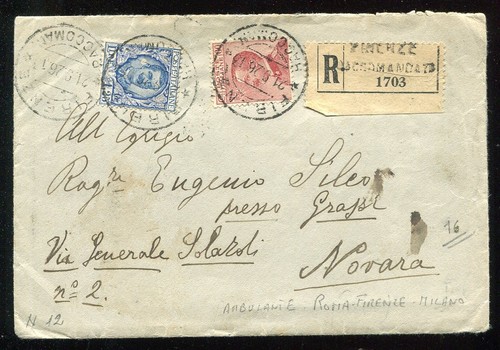 FIRENZE
RACCOMANDATE
R
1703
All' Egregio
Rag.re Eugenio Silco
presso Grassi
Via Generale Solaroli
n.º 2.
Novara
16
AMBULANTE ROMA-FIRENZE-MILANO
N 12